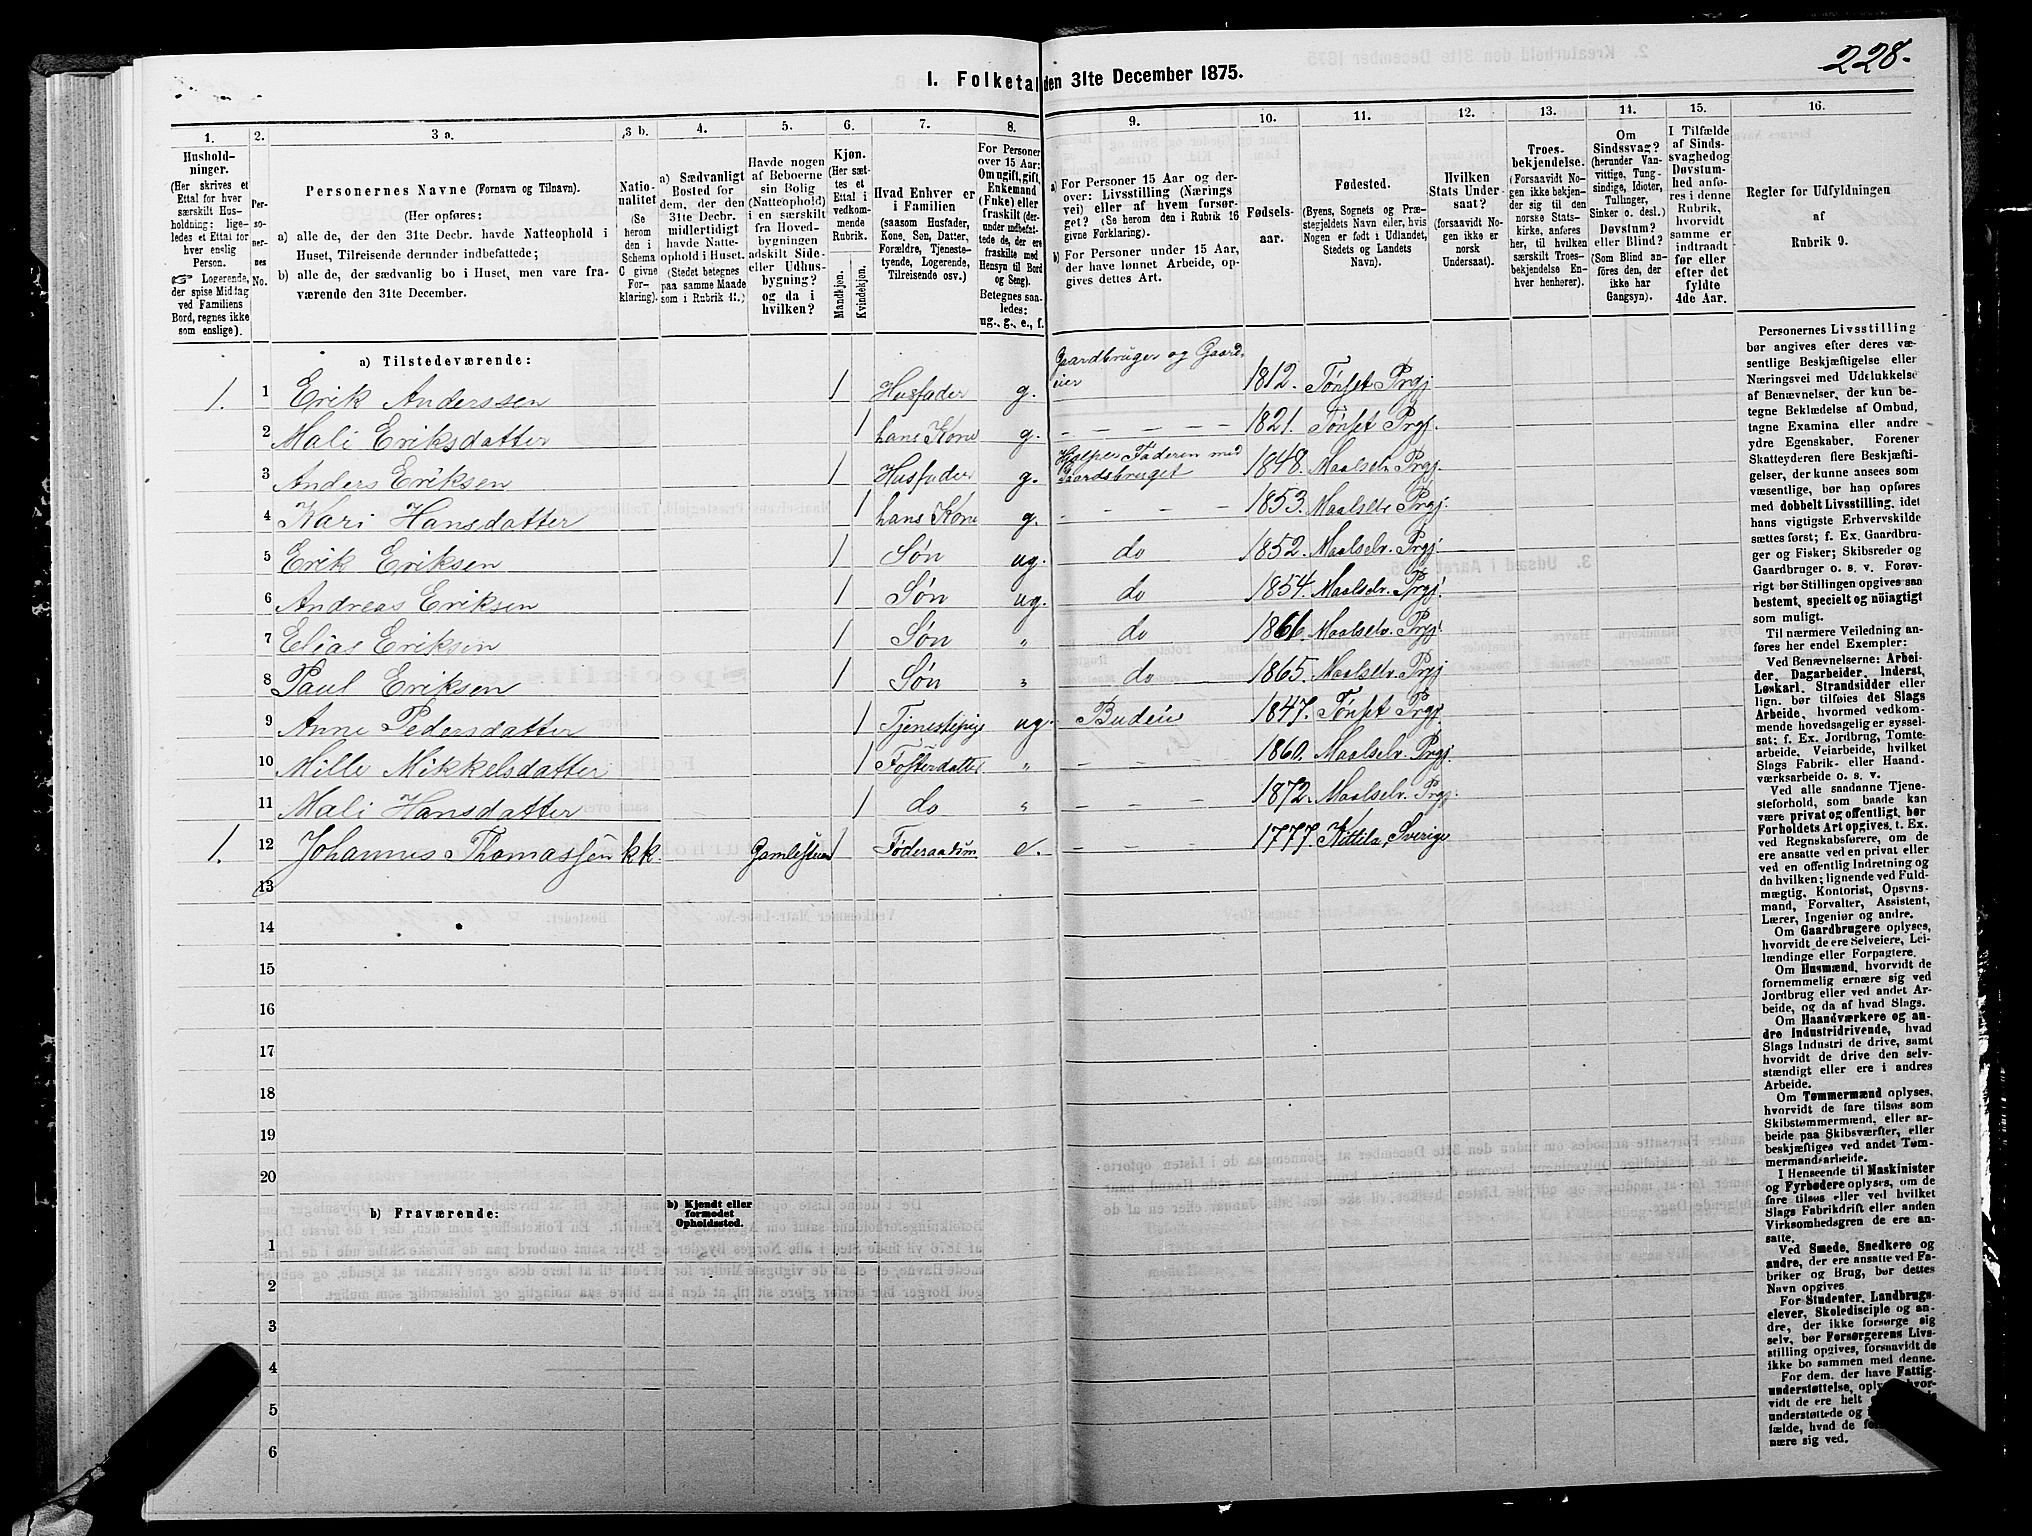 228.
I. Folketal den 31te December 1875.
1. 2. 3 a. 3 b. 4. 5. 6. 7. 8. 9. 10. 11. 12. 13. 14. 15. 16.
Hushold-
ninger.
(Her skrives et
Ettal for hver
særskilt Hus-
holdning; lige-
ledes et Ettal for
hver enslig
Person.
Logerende,
der spise Middag
ved Familiens
Bord, regnes ikke
som enslige).
Perso-
nernes
No.
Personernes Navne (Fornavn og Tilnavn).
(Her opføres:
a) alle de, der den 31te Decbr. havde Natteophold i
Huset, Tilreisende derunder indbefattede;
b) alle de, der sædvanlig bo i Huset, men vare fra-
værende den 31te December.
Natio-
nalitet
(Se
herom
den i
Schema
C givne
For-
klaring).
a) Sædvanligt
Bosted for
dem, der den
31te Decbr.
midlertidigt
havde Natte-
ophold i Huset.
(Stedet betegnes
paa samme Maade
som i Rubrik 11.)
Havde nogen
af Beboerne
sin Bolig
(Natteophold)
i en særskilt
fra Hoved-
bygningen
adskilt Side-
eller Udhus-
bygning?
og da i
hvilken?
Kjøn.
(Her sæt-
tes et
Ettal i
vedkom-
mende
Rubrik.
Mandkjøn.
Kvindekjøn.
Hvad Enhver er
i Familien
(saasom Husfader,
Kone, Søn, Datter,
Forældre, Tjeneste-
tyende, Logerende,
Tilreisende osv.)
For Personer
over 15 Aar:
Om ugift, gift,
Enkemand
(Enke) eller
fraskilt (der-
under indbefat-
tede de, der ere
fraskilte med
Hensyn til Bord
og Seng).
Betegnes saa-
ledes:
ug., g., e., f.
a) For Personer 15 Aar og der-
over: Livsstilling (Nærings-
vei) eller af hvem forsør-
get? (Se herom den i Rubrik 16
givne Forklaring).
b) For Personer under 15 Aar,
der have lønnet Arbeide, op-
gives dettes Art.
Fødsels-
aar.
Fødested.
(Byens, Sognets og Præ-
stegjeldets Navn eller, hvis
Nogen er født i Udlandet,
Stedets og Landets
Navn).
Hvilken
Stats Under-
saat?
(forsaavidt No-
gen ikke er
norsk
Undersaat).
Troes-
bekjendelse.
(Forsaavidt No-
gen ikke bekjen-
der sig til den
norske Stats-
kirke, anføres
her, til hvilken
særskilt Troes-
bekjendelse En-
hver henhører).
Om
Sindssvag?
(herunder Van-
vittige, Tung-
sindige, Idioter,
Tullinger,
Sinker o. desl.)
Døvstum?
eller Blind?
(Som Blind an-
føres den, der
ikke har
Gangsyn).
I Tilfælde
af Sinds-
svaghed og
Døvstum-
hed anfø-
res i denne
Rubrik,
hvorvidt
samme er
indtraadt
før eller
efter det
fyldte
4de Aar.
Regler for Udfyldningen
af
Rubrik 9.
a) Tilstedeværende:
1. 1 Erik Anderssen 1 Husfader g. Gaardbruger og Gaard-eier 1812. Tønset Prgj
2 Mali Eriksdatter 1 hans Kone g. - - - - - 1821. Tønset Prgj.
3 Anders Eriksen 1 Husfader g. Hjælper Faderen med Gaardsbruget 1848. Maalselv. Prgj.
4 Kari Hansdatter 1 hans Kone g. - - - - - 1853. Maalselv Prgj.
5 Erik Eriksen 1 Søn ug. do 1852. Maalselv. Prgj.
6 Andreas Eriksen 1 Søn ug. do 1854. Maalselv. Prgj.
7 Elias Eriksen 1 Søn " do 1861. Maalselv. Prgj.
8 Paul Eriksen 1 Søn " do 1865. Maalselv. Prgj
9 Anne Pedersdatter 1 Tjenestepige ug. Budeie 1847. Tønset Prgj.
10 Mille Mikkelsdatter 1 Fosterdatter " - - - - 1860. Maalselv. Prgj.
11 Mali Hansdatter 1 do " - - - 1872. Maalselv. Prgj.
1. 12 Johannes Thomassen kk. Gamlestuen 1 Føderaadsm. e. 1777. Kittila, Sverige
13
14
15
16
17
18
19
20
b) Fraværende:
b) Kjendt eller
formodet
Opholdssted.
1
2
3
4
5
6
Personernes Livsstilling
bør angives efter deres væ-
sentlige Beskjæftigelse eller
Næringsvei med Udelukkelse
af Benævnelser, der kun be-
tegne Beklædelse af Ombud,
tagne Examina eller andre
ydre Egenskaber. Forener
Skatteyderen flere Beskjæfti-
gelser, der kunne ansees som
væsentlige, bør han opføres
med dobbelt Livsstilling, idet
hans vigtigste Erhvervskilde
sættes først; f. Ex. Gaardbru-
ger og Fisker; Skibsreder og
Gaardbruger o. s. v. Forøv-
rigt bør Stillingen opgives saa
bestemt, specielt og nöiagtigt
som muligt.
Til nærmere Veiledning an-
føres her endel Exempler:
Ved Benævnelserne: Arbei-
der, Dagarbeider, Inderst,
Løskarl, Strandsidder eller
lign. bør tilføies det Slags
Arbeide, hvormed vedkom-
mende hovedsagelig er syssel-
sat; f. Ex. Jordbrug, Tomte-
arbeide, Veiarbeide, hvilket
Slags Fabrik- eller Haand-
værksarbeide o. s. v.
Ved alle saadanne Tjene-
steforhold, som baade kan
være privat og offentligt, bør
Forholdets Art opgives, t. Ex.
ved Regnskabsførere, om de
ere ansatte ved en privat eller
ved en offentlig Indretning og
da hvilken; lignende ved Fuld-
mægtig, Kontorist, Opsyns-
mand, Forvalter, Assistent,
Lærer, Ingeniør og andre.
Om Gaardbrugere oplyses,
hvorvidt de ere Selveiere, Lei-
lændinge eller Forpagtere.
Om Husmænd, hvorvidt de
fornemmelig ernære sig ved
Jordbrug eller ved andet Ar-
beide, og da af hvad Slags.
Om Haandværkere og an-
dre Industridrivende, hvad
Slags Industri de drive, samt
hvorvidt de drive den selv-
stændigt eller ere i andres
Arbeide.
Om Tømmermænd oplyses,
hvorvidt de fare tilsøs som
Skibstømmermænd, eller ar-
beide paa Skibsværfter, eller
beskjæftiges ved andet Tøm-
mermandsarbeide.
I Henseende til Maskinister
og Fyrbødere oplyses, om de
fare tilsøs eller ved hvilket
Slags Fabrikdrift eller anden
Virksomhedsgren de ere an-
satte.
Ved Smede, Snedkere og
andre, der ere ansatte ved Fa-
briker og Brug, bør dettes
Navn opgives.
For Studenter, Landbrugs-
elever, Skoledisciple og an-
dre, der ikke forsørge sig
selv, bør Forsørgerens Livs-
stilling opgives, forsaavidt de
ikke bo sammen med denne.
For dem, der have Fattig-
understøttelse, oplyses, hvor-
vidt de ere helt
understøttede og
fælde, hvad de
nære sig ved.